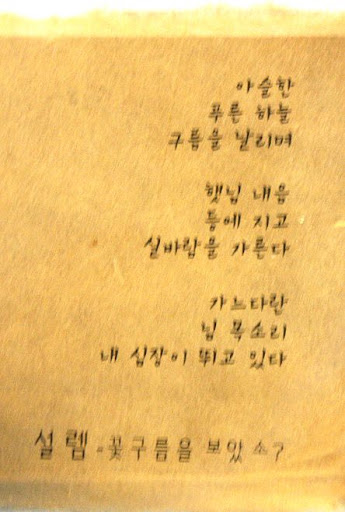 아슬한
푸른 하늘
구름을 날리며
햇님 내음
등에 지고
실바람을 가른다
가느다란
님 목소리
내 심장이 뛰고 있다
설렘 - 꽃구름을 보았소?